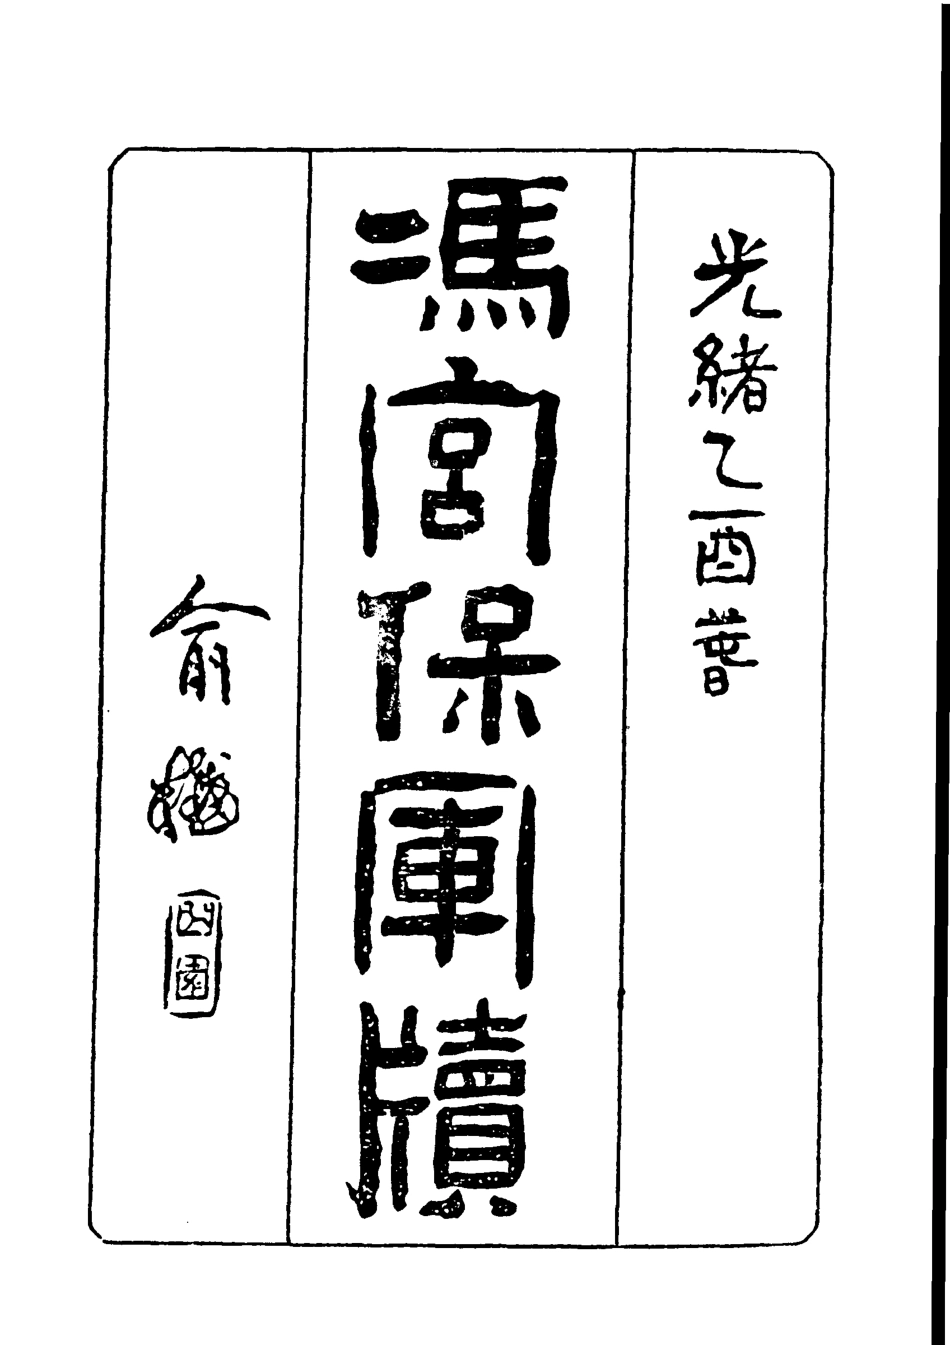 光緒乙酉萅
馮宮保軍牘
俞樾
曲園